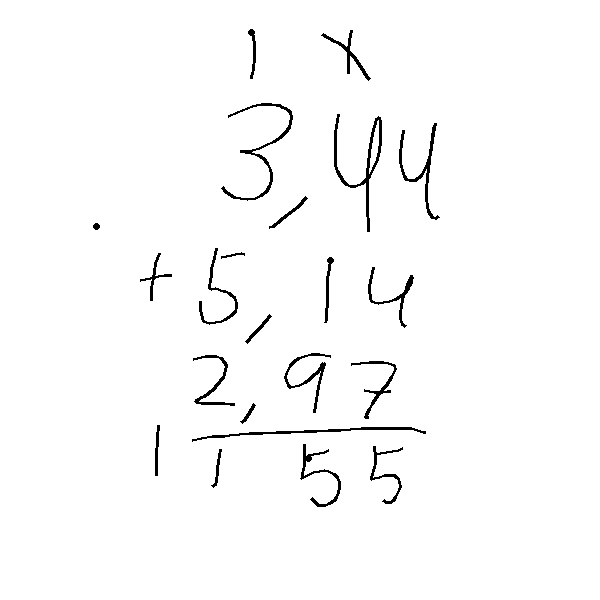 1 x
3,44
+ 5,14
2,97
1 1 5 5